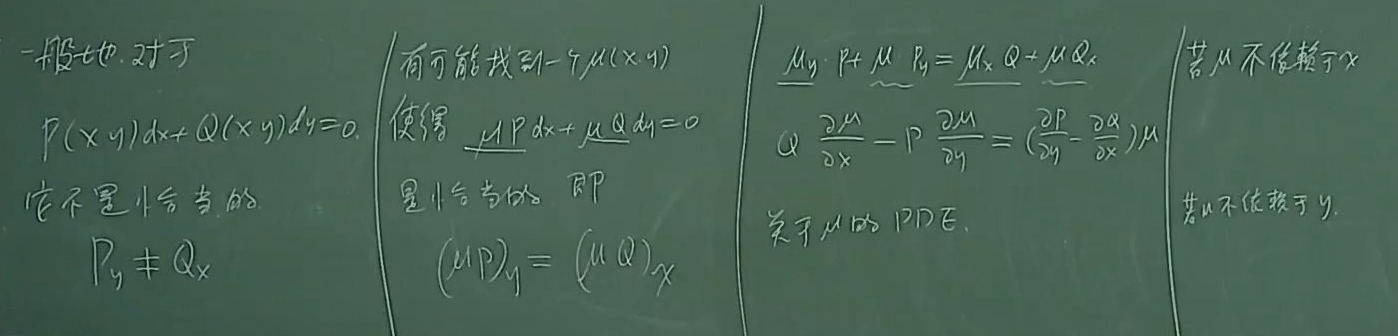 一般地,对于
P(x y)dx+Q(x y)dy=0.
它不是恰当的
P_y ≠ Q_x
有可能找到一个μ(x.y)
使得 μP dx+μQ dy=0
是恰当的 即
(μP)_y = (μQ)_x
μ_y·P+μ·P_y=μ_x Q+μQ_x
Q ∂μ/∂x − P ∂μ/∂y = (∂P/∂y − ∂Q/∂x)μ
关于μ的PDE.
若μ不依赖于x
若μ不依赖于y.